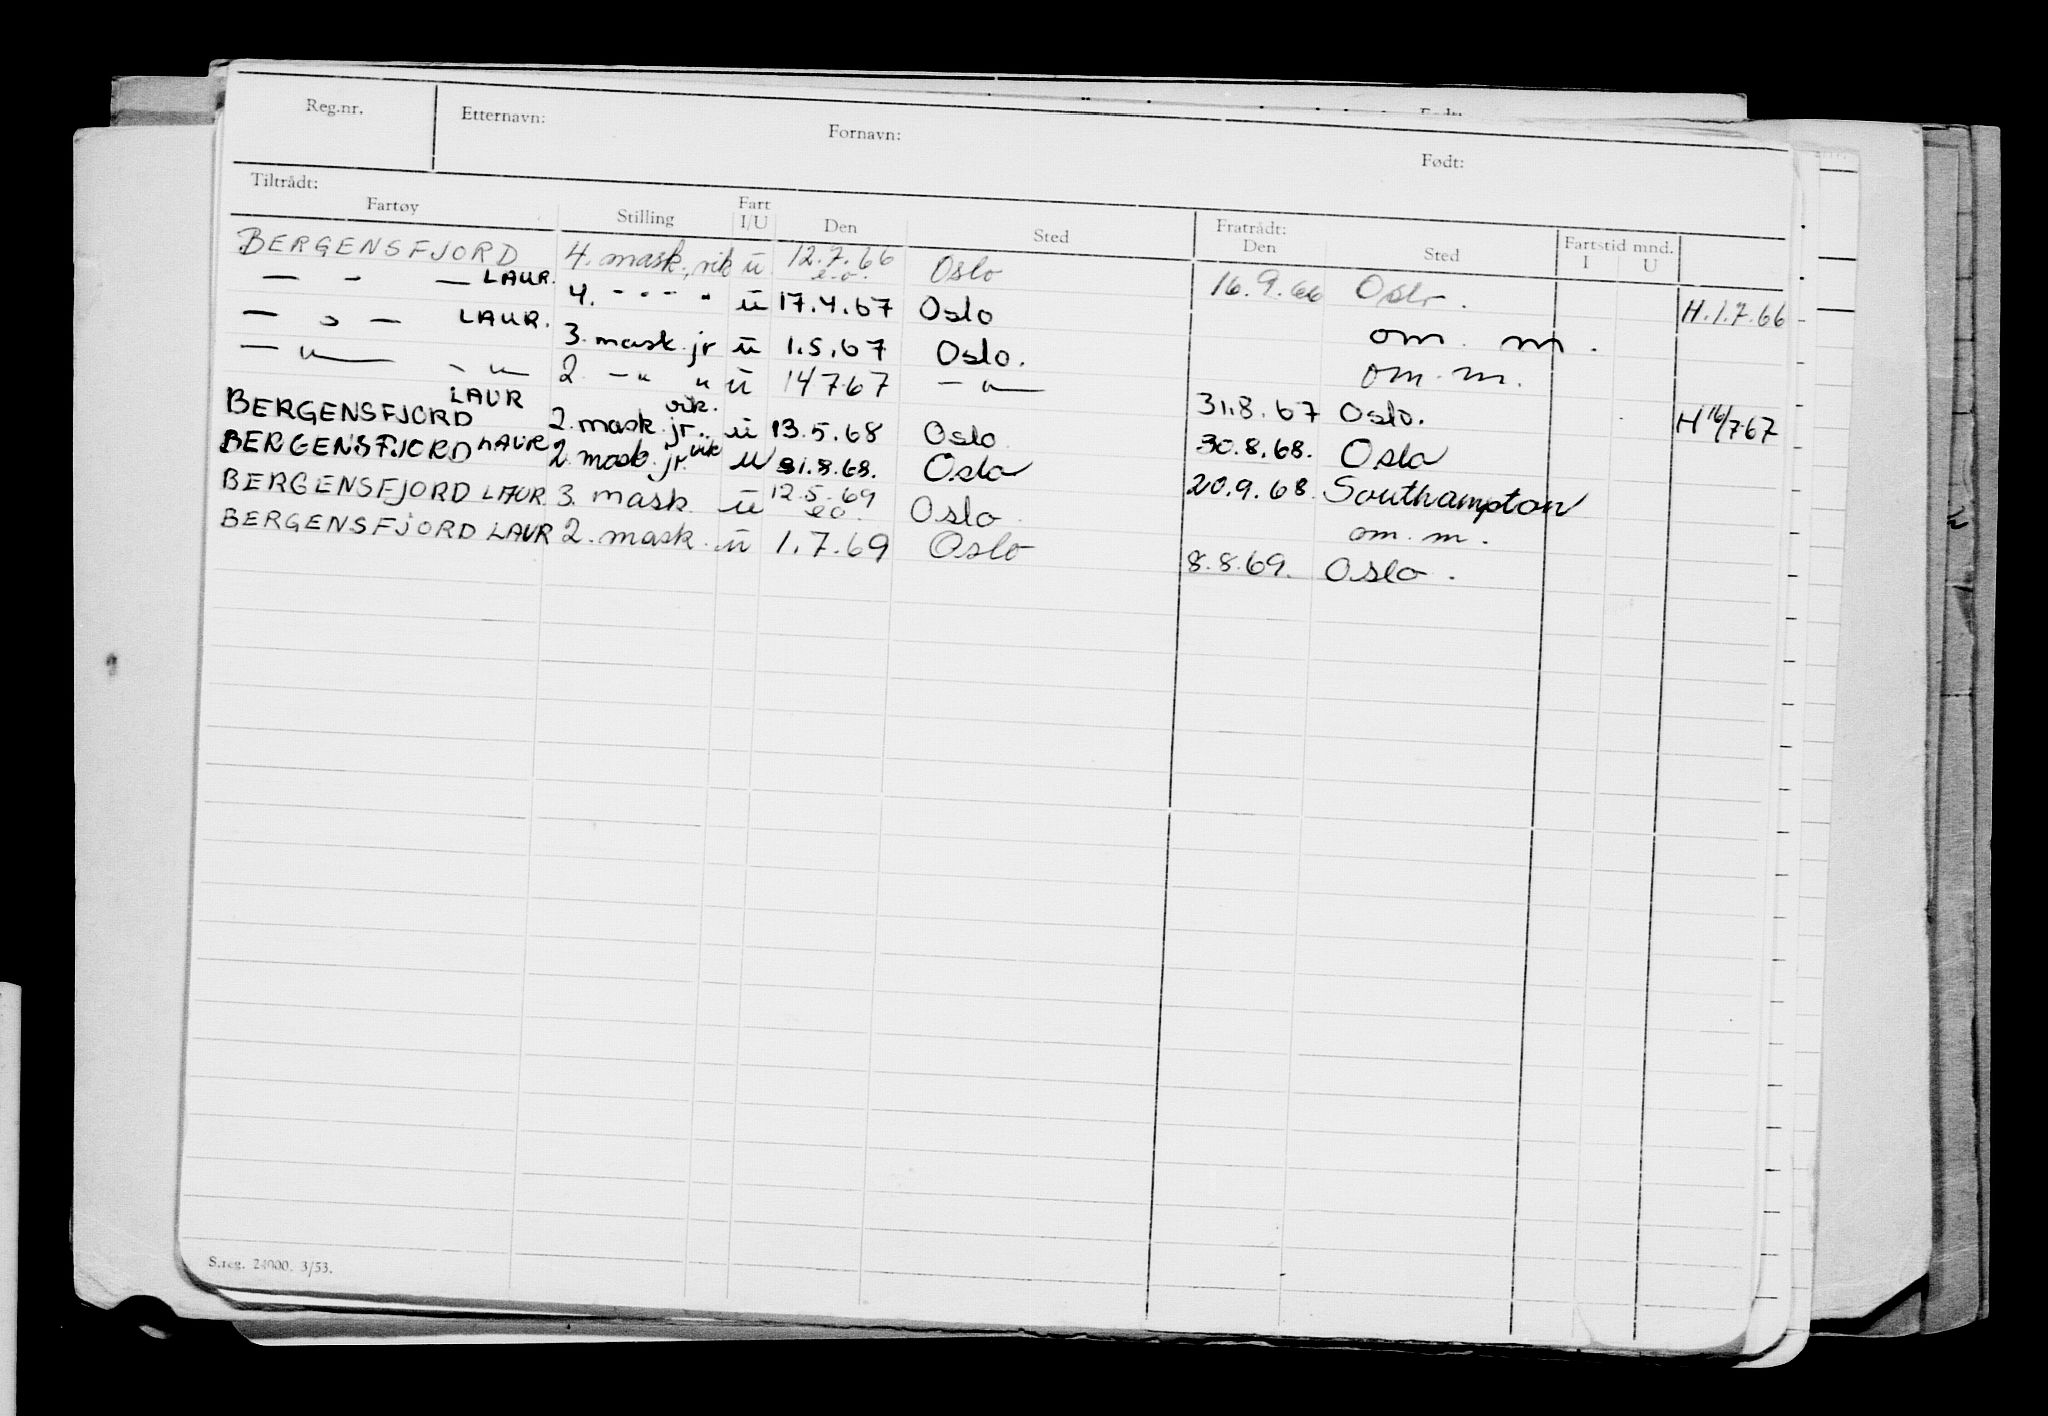 Født:
Reg.nr. Etternavn: Fornavn: Født:
Tiltrådt: Fratrådt:
Fartøy Stilling Fart I/U Den Sted Den Sted Fartstid mnd. I U
BERGENSFJORD 4. mask. vik ū 12.7.66 e.o. Oslo 16.9.66 Oslo. H.1.7.66
— " — LAUR. 4. - " - " ū 17.4.67 Oslo om. m.
— " — LAUR. 3. mask. jr ū 1.5.67 Oslo. om. m.
— " — - " — 2. — " " ū 14767 — " — 31.8.67 Oslo. H 16/7.67
BERGENSFJORD LAUR 2. mask. jr. vik. ū 13.5.68 Oslo 30.8.68. Oslo
BERGENSFJORD LAUR 2. mask. jr. vik U 31.8.68. Oslo 20.9.68. Southampton
BERGENSFJORD LAUR 3. mask. ū 12.5.69 e.o. Oslo om. m.
BERGENSFJORD LAUR 2. mask. ū 1.7.69 Oslo 8.8.69. Oslo.
S.reg. 24000. 3/53.